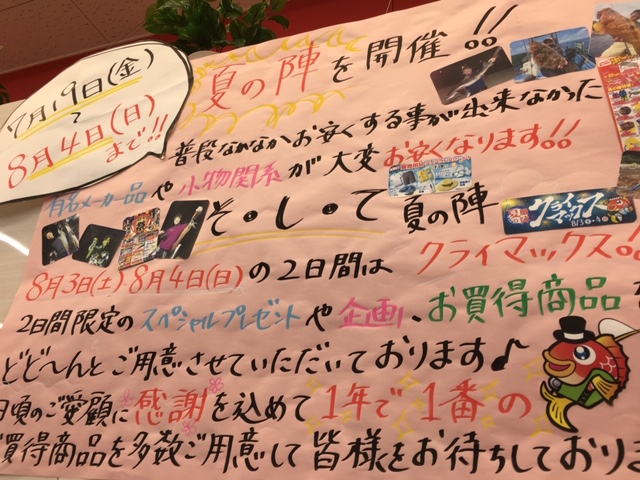 7月19日(金)
〜
8月4日(日)
まで!!
夏の陣を開催!!
普段なかなかお安くする事が出来なかった
有名メーカー品や小物関係が大変お安くなります!!
そ・し・て 夏の陣
クライマックス
8/3 4
8月3日(土)8月4日(日)の2日間は クライマックス!!
2日間限定のスペシャルプレゼントや企画、お買得商品
どど〜んとご用意させていただいております♪
日頃のご愛顧に感謝を込めて1年で1番の
買得商品を多数ご用意して皆様をお待ちしており